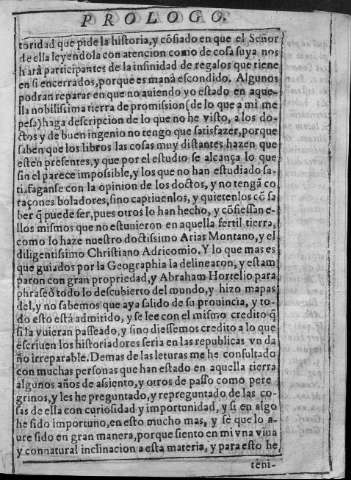 PROLOGO.
toridad que pide la historia, y cõfiado en que el Señor
de ella leyendola con atencion como de cosa suya nos
hará participantes de la infinidad de regalos que tiene
en si encerrados, porque es maná escondido. Algunos
podran reparar en que no auiendo yo estado en aque-
lla nobilissima tierra de promission (de lo que a mi me
pesa) haga descripcion de lo que no he visto, a los do-
ctos y de buen ingenio no tengo que satisfazer, porque
saben que los libros las cosas muy distantes hazen que
esten presentes, y que por el estudio se alcança lo que
sin el parece impossible, y los que no han estudiado sa-
tisfaganse con la opinion de los doctos, y no tengã co
raçones boladores, sino captiuenlos, y quietenlos cõ sa
ber q̃ puede ser, pues otros lo han hecho, y cõfiessan e-
llos mismos que no estuuieron en aquella fertil tierra,
como lo haze nuestro doctissimo Arias Montano, y el
diligentissimo Christiano Adricomio. Y lo que mas es
que guiados por la Geographia la delinearon, y estam
paron con gran propriedad, y Abraham Hortelio para
phraseò todo lo descubierto del mundo, y hizo mapas
del, y no sabemos que aya salido de su prouincia, y to-
do esto está admirido, y se lee con el mismo credito q̃
si la vuieran passeado, y sino diessemos credito a lo que
escriuen los historiadores seria en las republicas vn da
ño irreparable. Demas de las leturas me he consultado
con muchas personas que han estado en aquella tierra
algunos años de asiento, y otros de passo como pere
grinos, y les he preguntado, y repreguntado de las co-
sas de ella con curiosidad y importunidad, y si en algo
he sido importuno, en esto mucho mas, y se que lo a-
ure sido en gran manera, porque siento en mi vna viua
y connatural inclinacion a esta materia, y para esto he
teni-